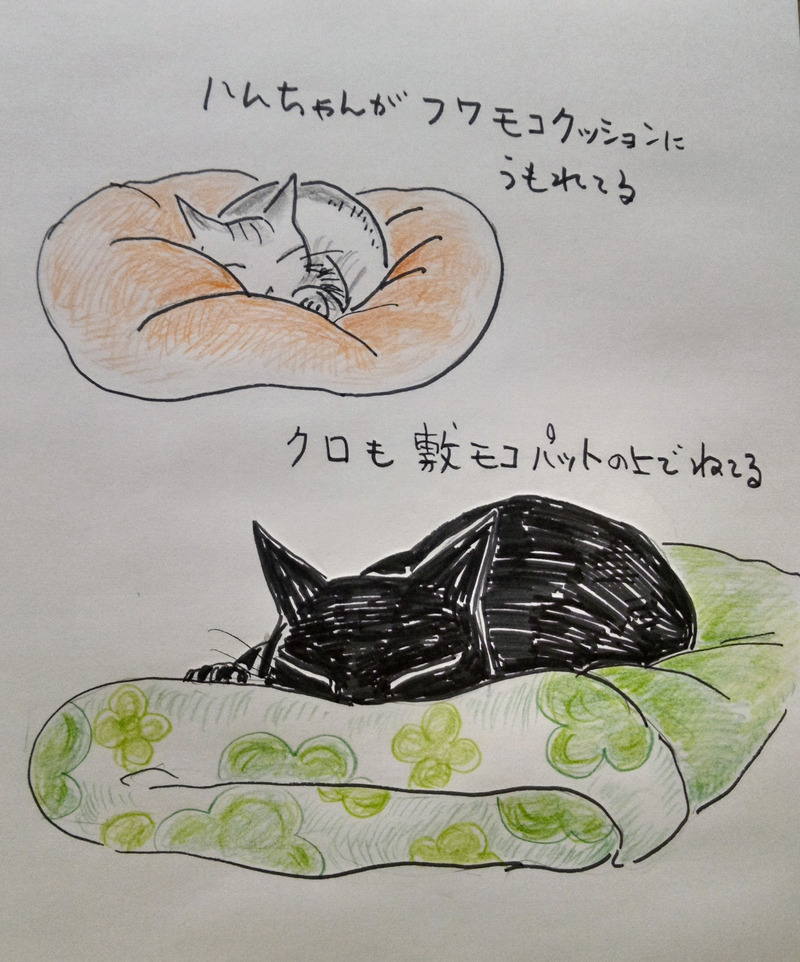 ハムちゃんが フワモコクッションに
うもれてる
クロも 敷モコパットの上でねてる